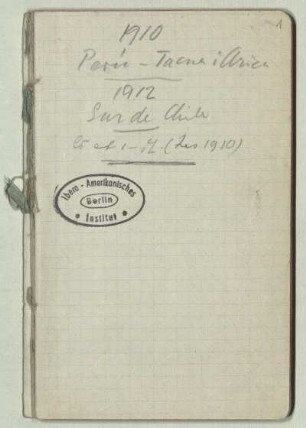 1
1910
Perú - Tacna i Arica
1912
Sur de Chile
(Des 1910)
Ibero - Amerikanisches
Berlin
Institut